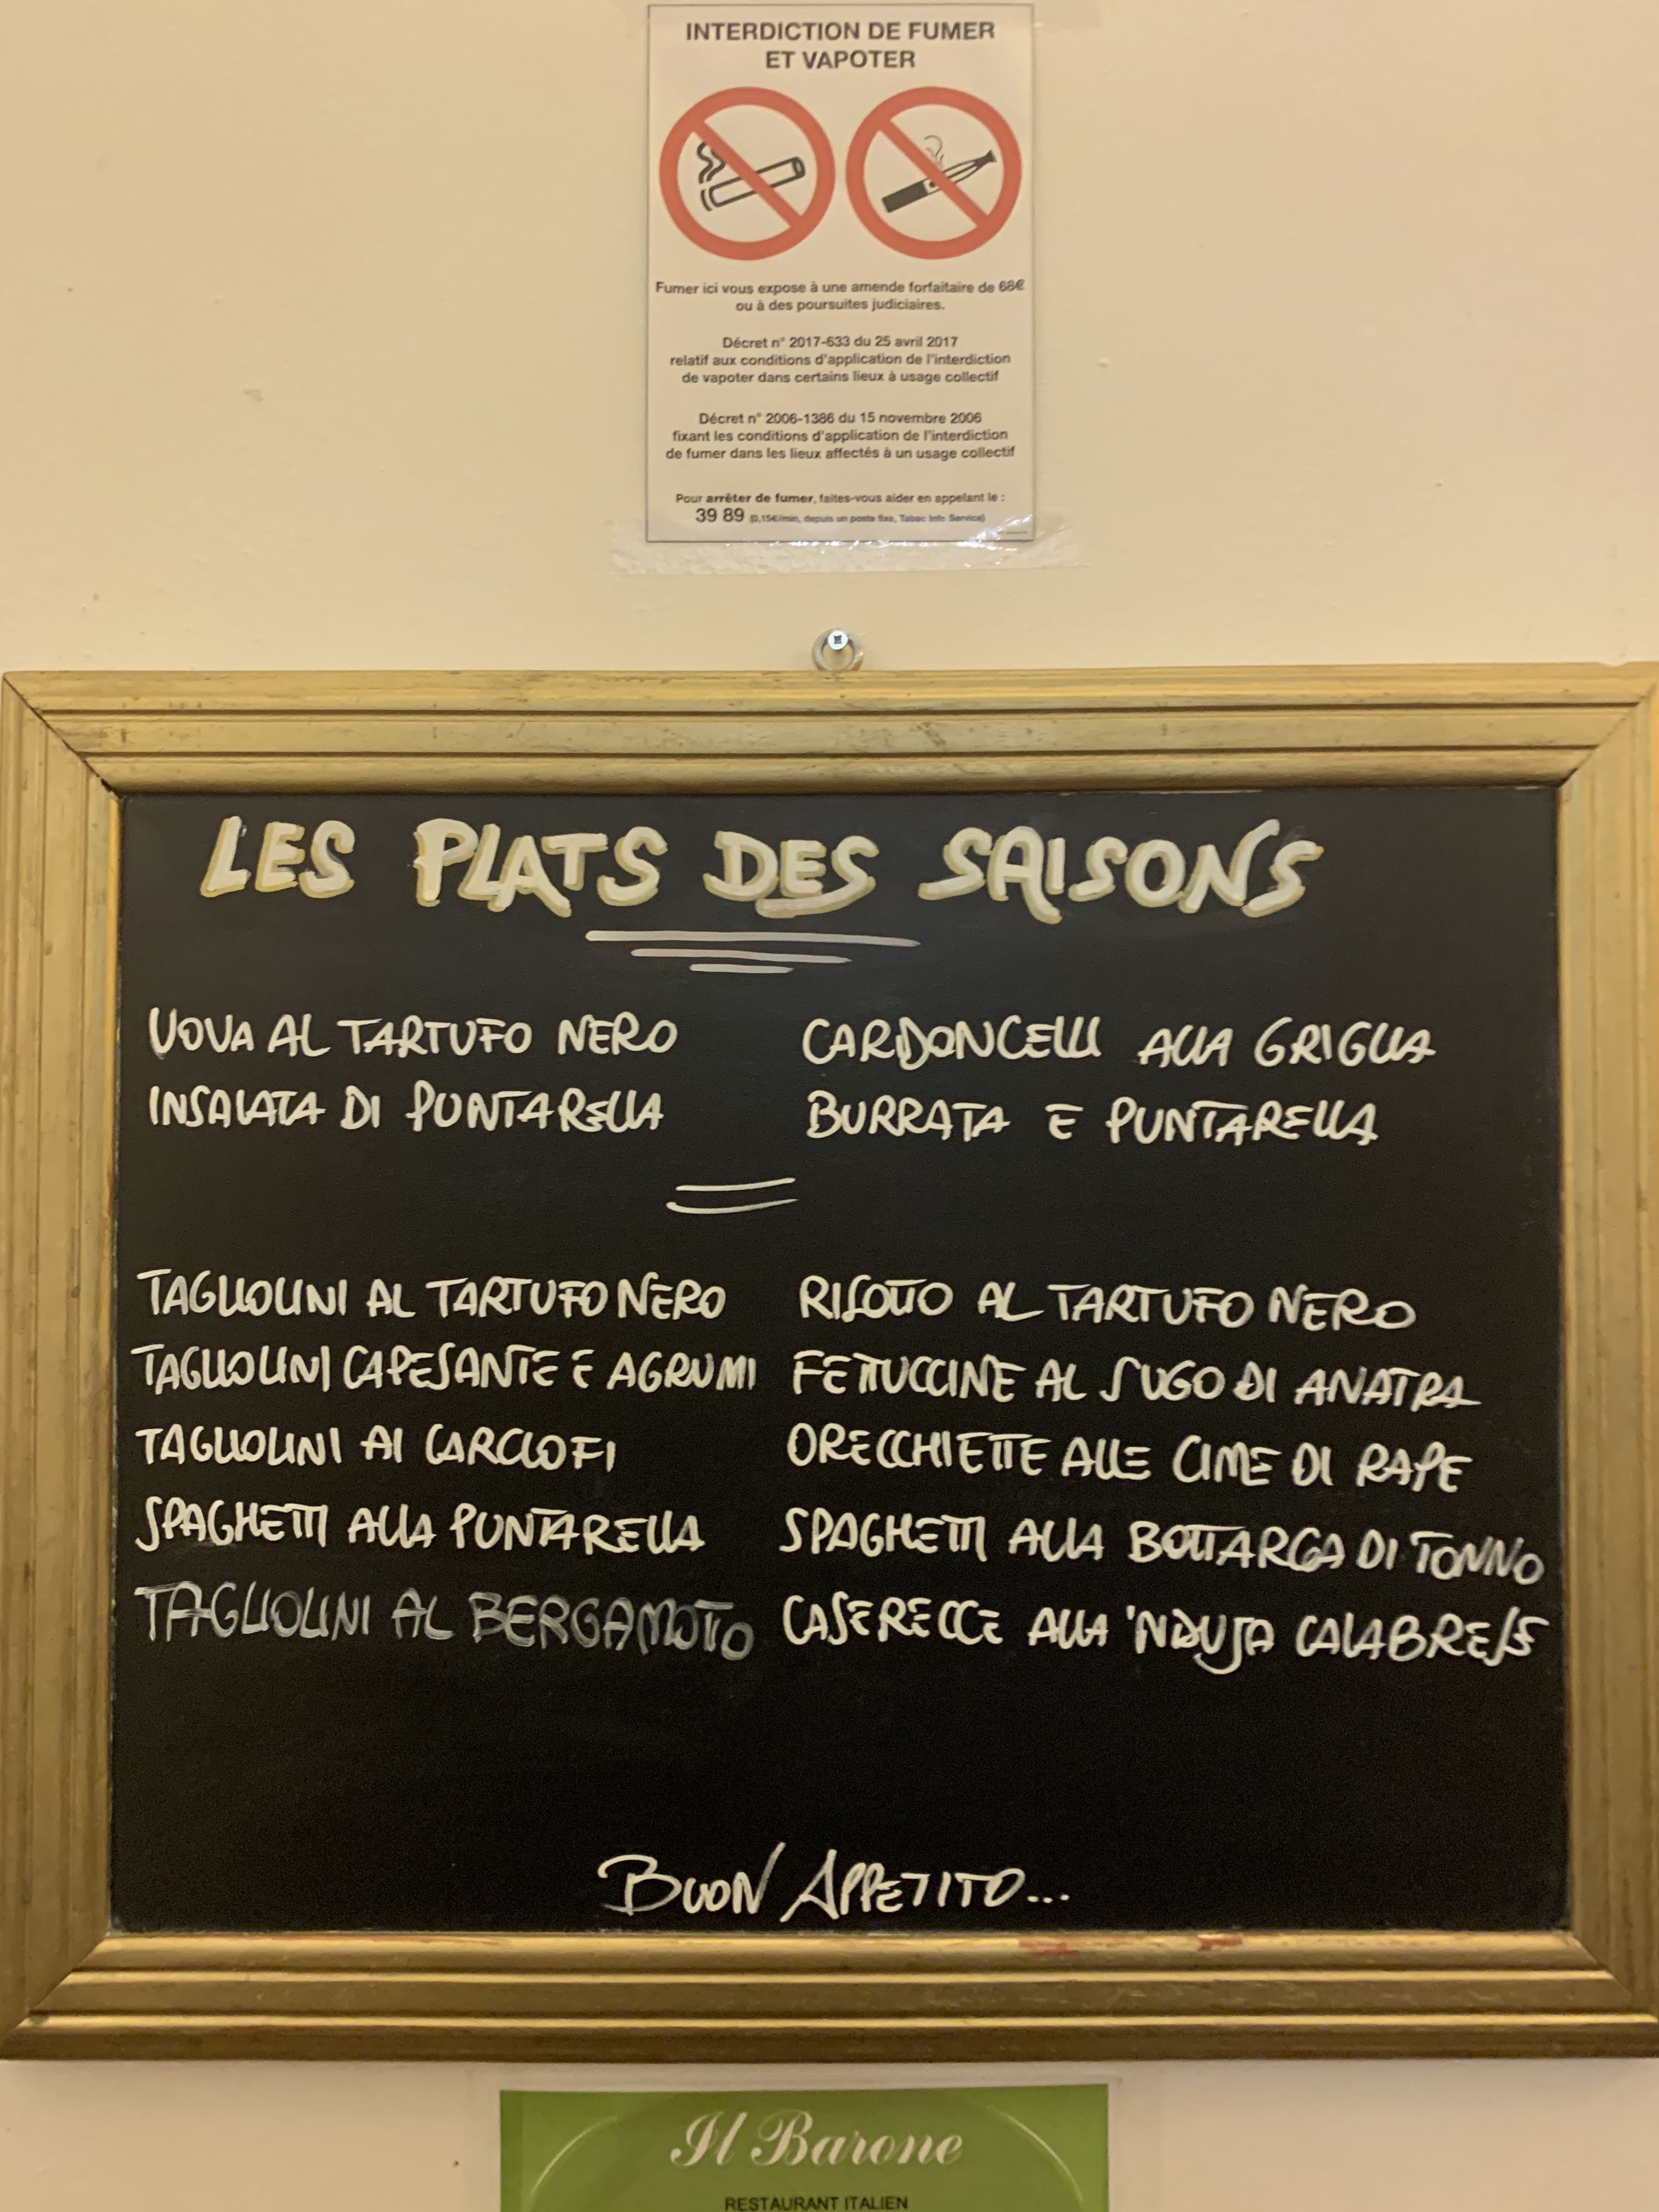 INTERDICTION DE FUMER
ET VAPOTER
Fumer ici vous expose à une amende forfaitaire de 68€
ou à des poursuites judiciaires.
Décret n° 2017-633 du 25 avril 2017
relatif aux conditions d'application de l'interdiction
de vapoter dans certains lieux à usage collectif
Décret n° 2006-1386 du 15 novembre 2006
fixant les conditions d'application de l'interdiction
de fumer dans les lieux affectés à un usage collectif
Pour arrêter de fumer, faites-vous aider en appelant le :
39 89 (0,15€/min, depuis un poste fixe, Tabac Info Service)
LES PLATS DES SAISONS
UOVA AL TARTUFO NERO
INSALATA DI PUNTARELLA
CARDONCELLI ALLA GRIGLIA
BURRATA E PUNTARELLA
TAGLIOLINI AL TARTUFO NERO
TAGLIOLINI CAPESANTE E AGRUMI
TAGLIOLINI AI CARCIOFI
SPAGHETTI ALLA PUNTARELLA
TAGLIOLINI AL BERGAMOTTO
RISOTTO AL TARTUFO NERO
FETTUCCINE AL SUGO DI ANATRA
ORECCHIETTE ALLE CIME DI RAPE
SPAGHETTI ALLA BOTTARGA DI TONNO
CASERECCE ALLA 'NDUJA CALABRESE
BUON APPETITO...
Il Barone
RESTAURANT ITALIEN